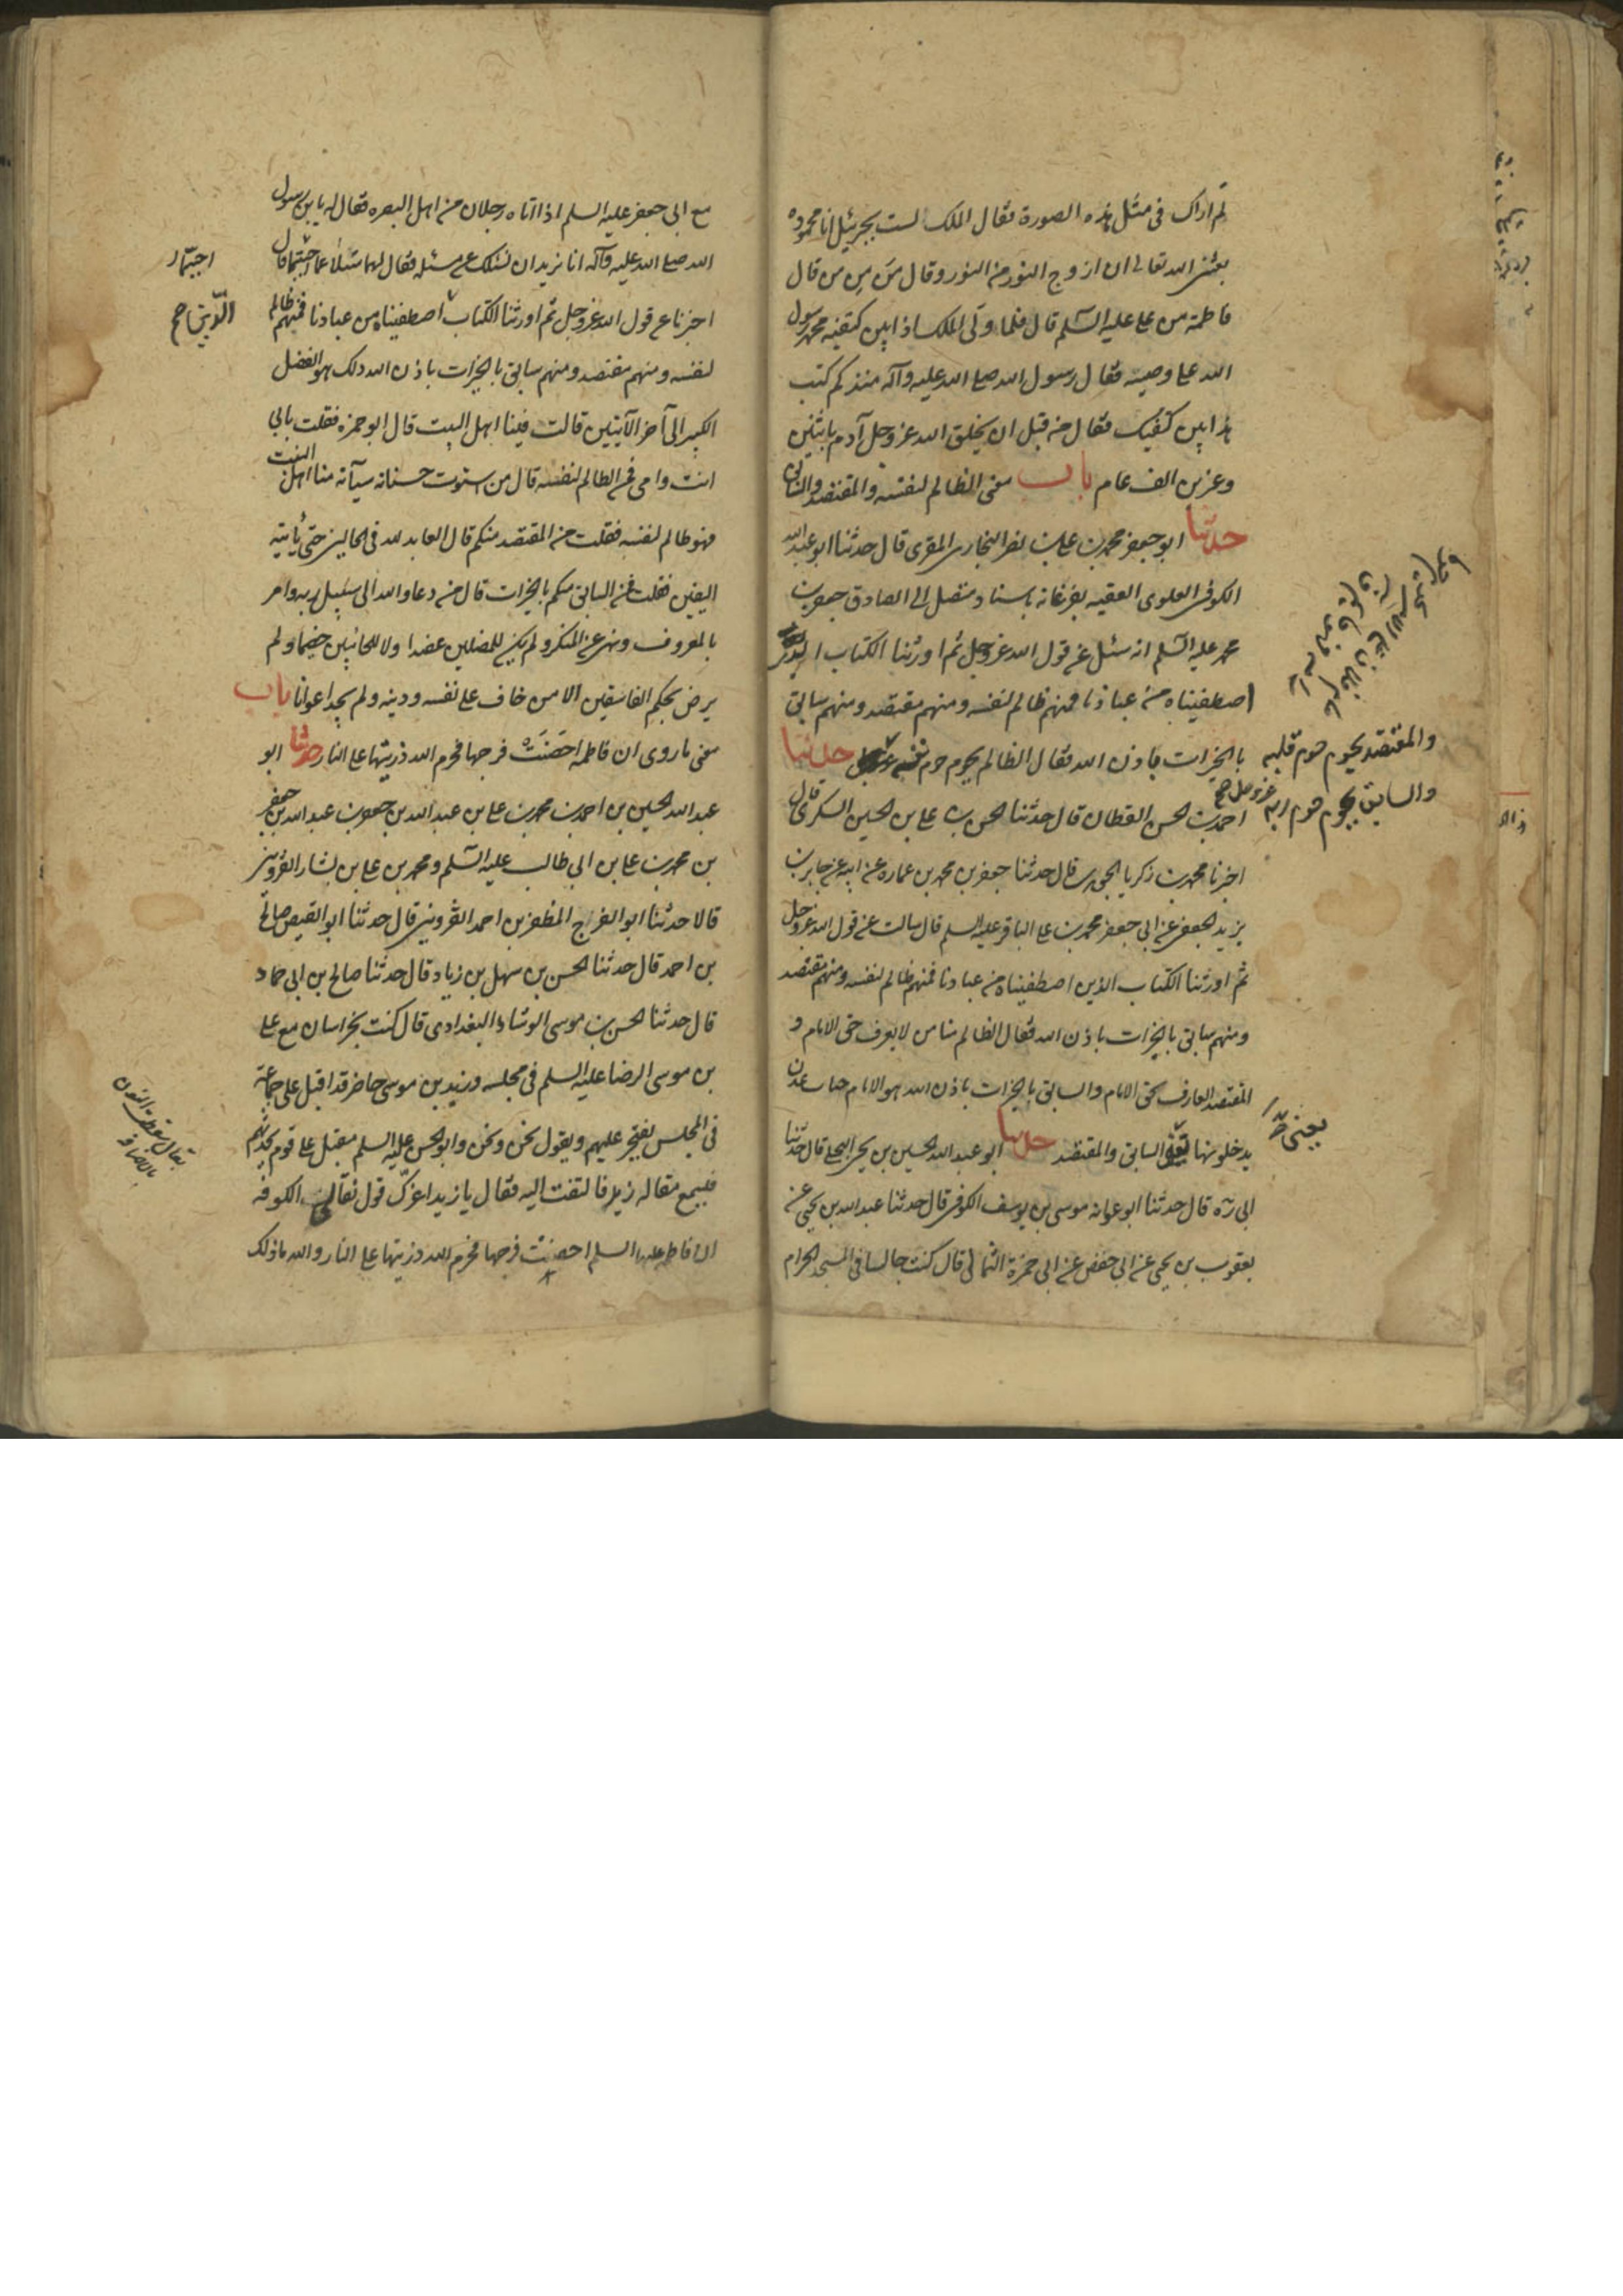 لم ارك في مثل هذه الصورة فقال الملك لست بجبرئيل انا محمود
بعثني الله تعالى ان ازوج النور من النور وقال من من من قال
فاطمة من علي عليه السلم قال فلما ولى الملك اذا بين كتفيه محمد رسول
الله علي وصيه فقال رسول الله صلى الله عليه وآله منذ كم كتب
هذا بين كتفيك فقال من قبل ان يخلق الله عز وجل آدم باثنين
وعشرين الف عام باب معنى الظالم لنفسه والمقتصد والسابق
حدثنا ابو جعفر محمد بن علي بن نصر البخاري المقري قال حدثنا ابو عبد الله
الكوفي العلوي الفقيه بفرغانه باسناد متصل الى الصادق جعفر بن
محمد عليه السلم انه سئل عن قول الله عز وجل ثم اورثنا الكتاب الذين
اصطفيناه من عبادنا فمنهم ظالم لنفسه ومنهم مقتصد ومنهم سابق
بالخيرات باذن الله فقال الظالم يحوم حوم نفسه حدثنا
والمقتصد يحوم حوم قلبه
والسابق يحوم حوم ربه عز وجل صح
احمد بن الحسن القطان قال حدثنا الحسن بن علي بن الحسين السكري قال
اخبرنا محمد بن زكريا الجوهري قال حدثنا جعفر بن محمد بن عماره عن ابيه عن جابر بن
يزيد الجعفي عن ابي جعفر محمد بن علي الباقر عليه السلم قال سالت عن قول الله عز وجل
ثم اورثنا الكتاب الذين اصطفيناه من عبادنا فمنهم ظالم لنفسه ومنهم مقتصد
ومنهم سابق بالخيرات باذن الله فقال الظالم منا من لا يعرف حق الامام و
المقتصد العارف بحق الامام والسابق بالخيرات باذن الله هو الامام جنات عدن
يدخلونها السابق والمقتصد حدثنا ابو عبد الله الحسين بن يحيى البجلي قال حدثنا
يعني
ابي ره قال حدثنا ابو عوانه موسى بن يوسف الكوفي قال حدثنا عبد الله بن يحيى عن
يعقوب بن يحيى عن ابي حفص عن ابي حمزة الثمالي قال كنت جالسا في المسجد الحرام
مع ابي جعفر عليه السلم اذا اتاه رجلان من اهل البصره فقال له يا بن رسول
الله صلى الله عليه وآله انا نريد ان نسئلك عن مسئله فقال لهما سئلا عما احببتما قال
اخبرنا عن قول الله عز وجل ثم اورثنا الكتاب اصطفيناه من عبادنا فمنهم ظالم
الذين صح
لنفسه ومنهم مقتصد ومنهم سابق بالخيرات باذن الله ذلك هو الفضل
الكبير الى آخر الآيتين قالت فينا اهل البيت قال ابو حمزه فقلت بابي
انت وامي فمن الظالم لنفسه قال من استوت حسناته سيآته منا اهل البيت
فهو ظالم لنفسه فقلت من المقتصد منكم قال العابد لله في الحالين حتى يأتيه
اليقين فقلت فمن السابق منكم بالخيرات قال من دعا والله الى سبيل ربه وامر
بالمعروف ونهى عن المنكر ولم يكن للمضلين عضدا ولا للخائنين خصيما ولم
يرض بحكم الفاسقين الا من خاف على نفسه ودينه ولم يجد اعوانا باب
معنى ما روى ان فاطمه احصنت فرجها فحرم الله ذريتها على النار حدثنا ابو
عبد الله الحسين بن احمد بن محمد بن علي بن عبد الله بن جعفر بن عبد الله بن جعفر
بن محمد بن علي بن ابي طالب عليه السلم ومحمد بن علي بن بشار القزويني
قالا حدثنا ابو الفرج المظفر بن احمد القزويني قال حدثنا ابو الفيض صالح
بن احمد قال حدثنا الحسن بن سهل بن زياد قال حدثنا صالح بن ابي حماد
قال حدثنا الحسن بن موسى الوشاء البغدادي قال كنت بخراسان مع علي
بن موسى الرضا عليه السلم في مجلسه وزيد بن موسى حاضر قد اقبل على جماعة
في المجلس يفتخر عليهم ويقول نحن ونحن وابو الحسن عليه السلم مقبل على قوم يحدثهم
فسمع مقاله زيد فالتفت اليه فقال يا زيد اغرك قول الكوفه
ان فاطمه عليها السلم احصنت فرجها فحرم الله ذريتها على النار والله ما ذلك